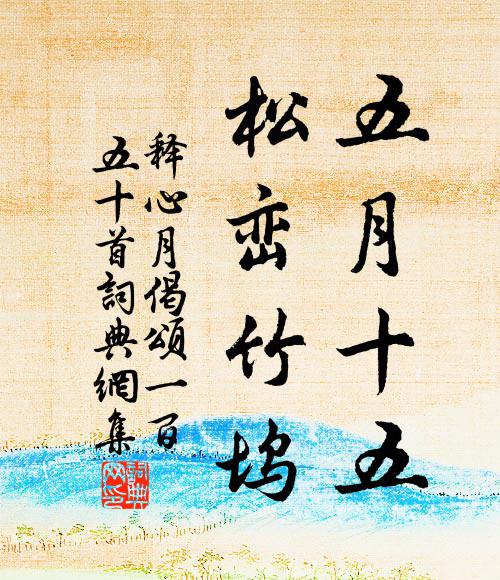 五月十五
松峦竹坞
释心月偈頌一百
五十首詞典網集